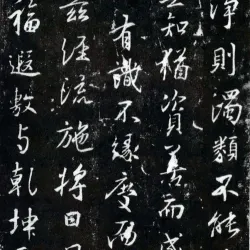 淨則濁類不能
知猶資善而成
有識不緣慶而
茲經流施將日月
福遐敷与乾坤